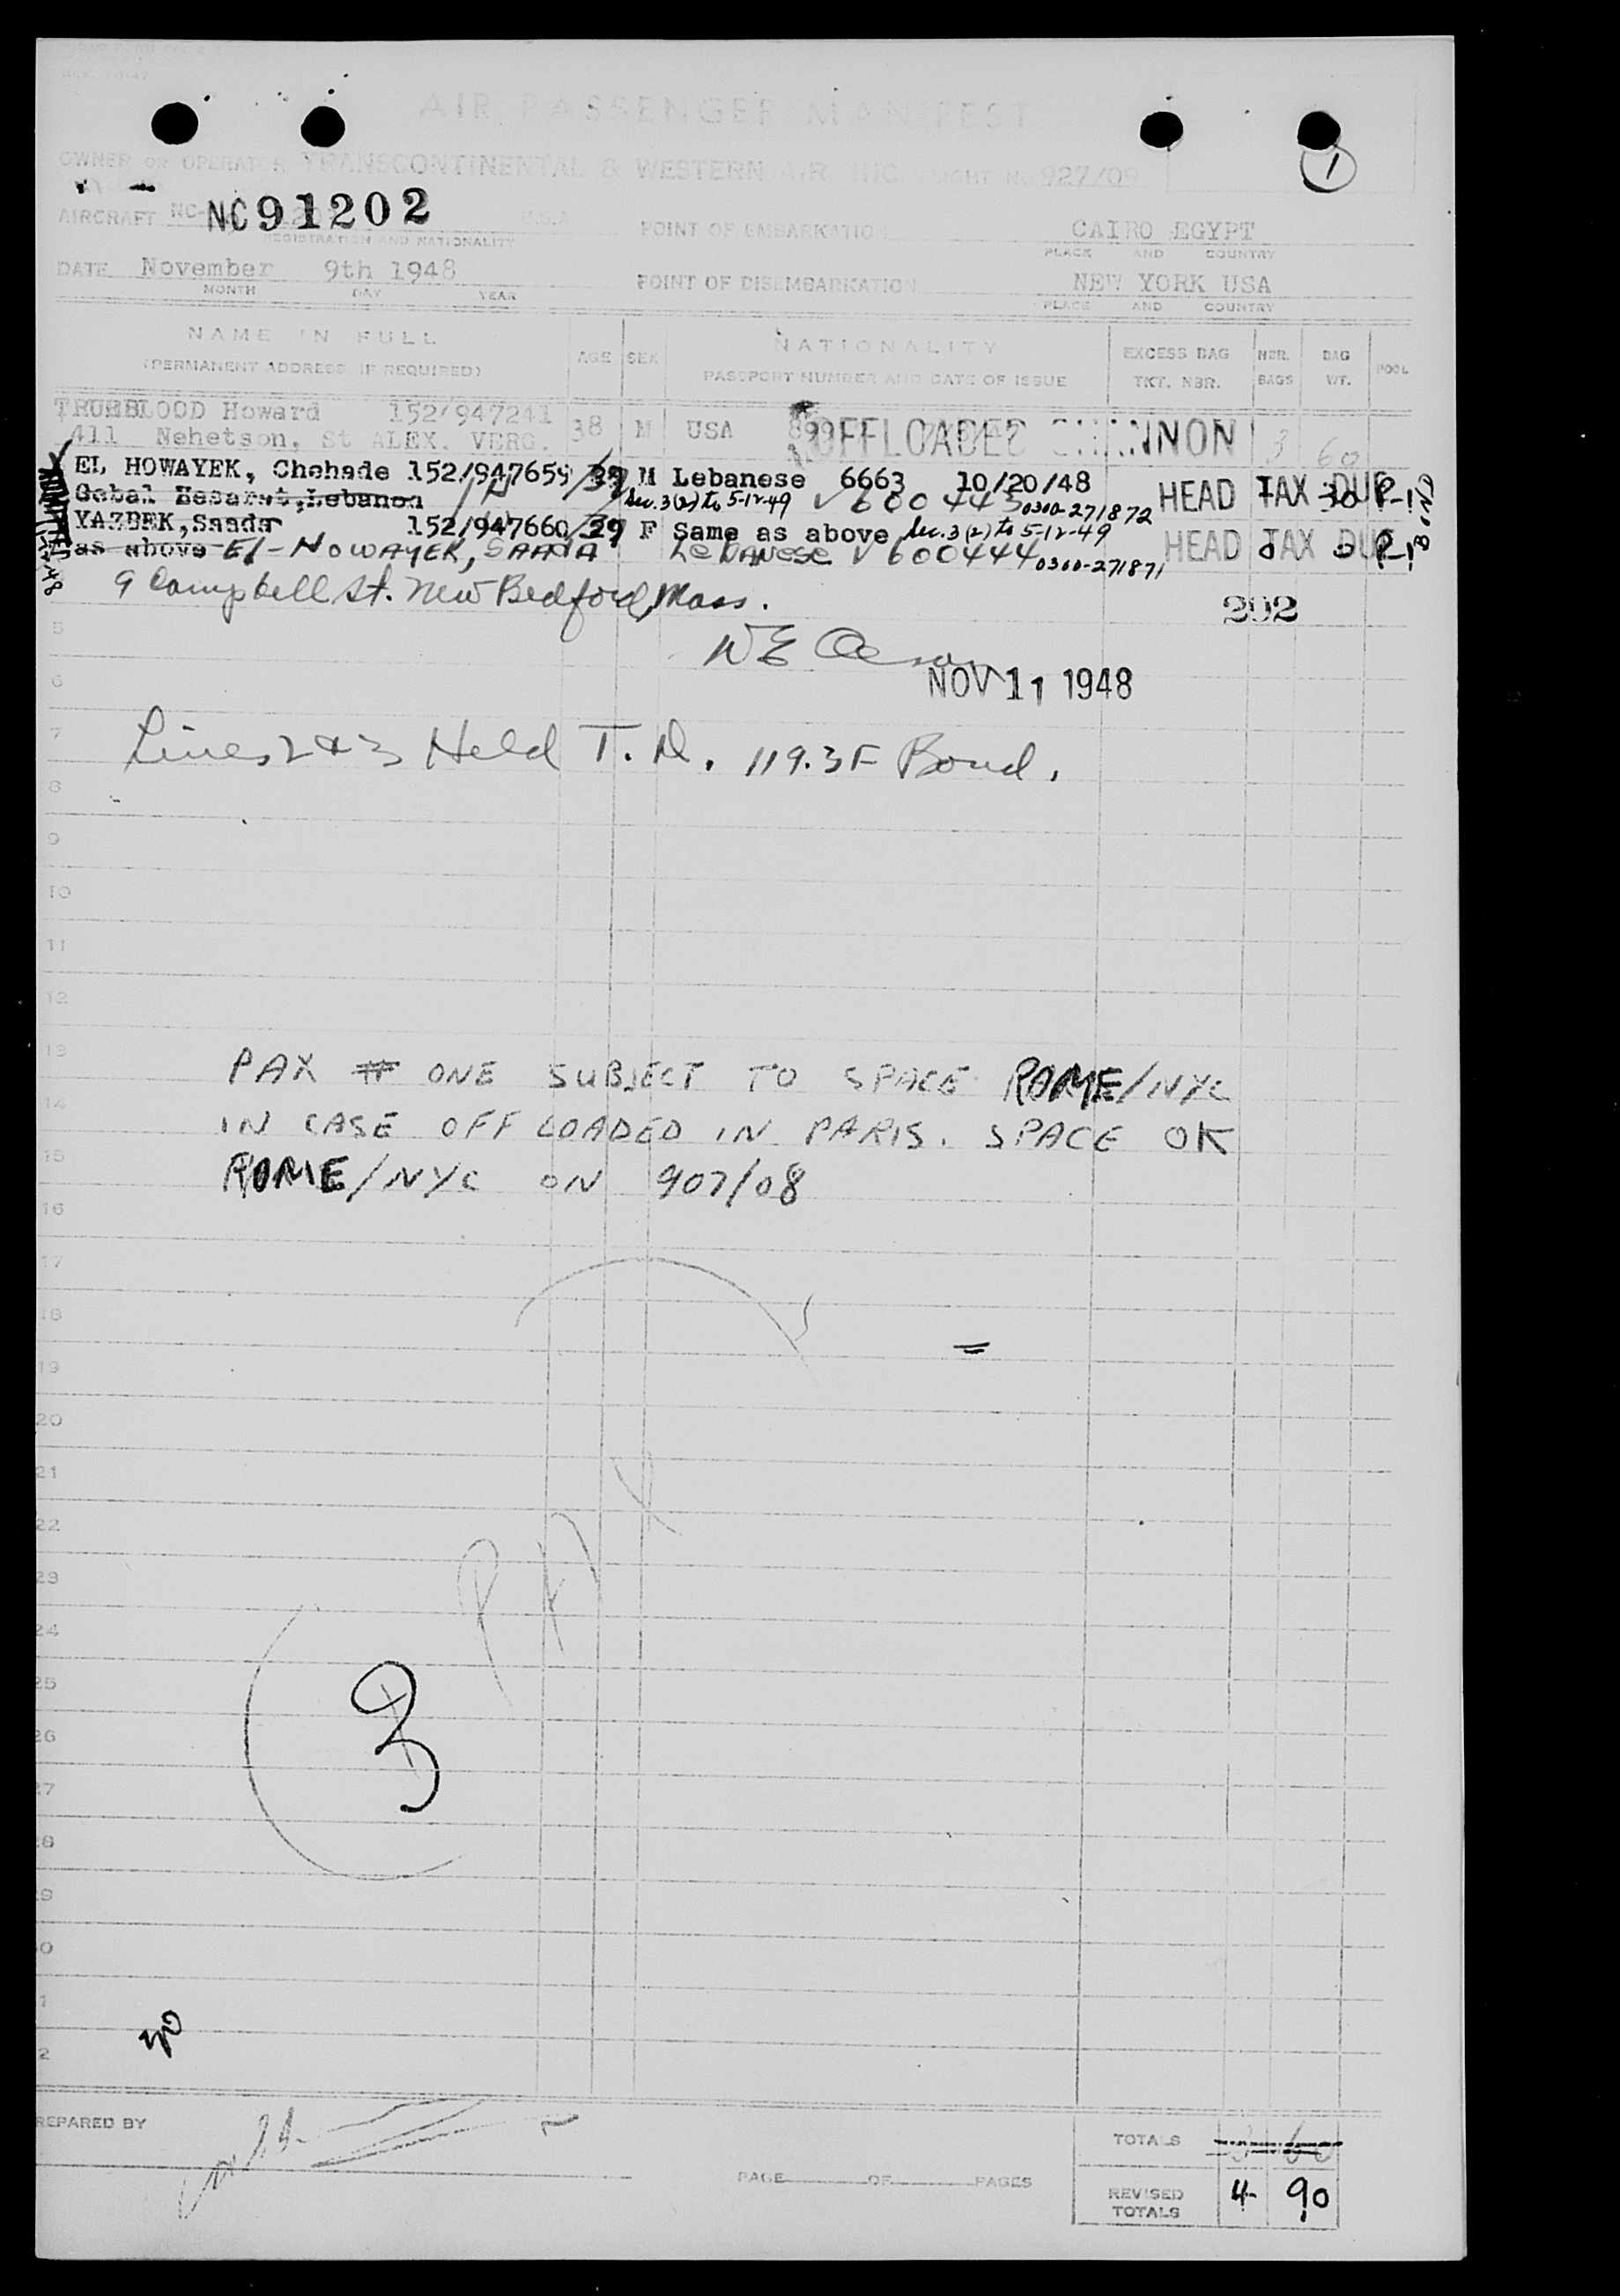 AIR PASSENGER MANIFEST
①
OWNER OR OPERATOR TRANSCONTINENTAL & WESTERN AIR INC FLIGHT No 927/09
AIRCRAFT NC- NC91202 U.S.A
REGISTRATION AND NATIONALITY
POINT OF EMBARKATION CAIRO EGYPT
PLACE AND COUNTRY
DATE November 9th 1948
MONTH DAY YEAR
POINT OF DISEMBARKATION NEW YORK USA
PLACE AND COUNTRY
NAME IN FULL
(PERMANENT ADDRESS IF REQUIRED)
AGE SEX NATIONALITY
PASSPORT NUMBER AND DATE OF ISSUE
EXCESS BAG TKT. NBR. NBR. BAGS BAG WT. POOL
TRUEBLOOD Howard 152/947241 38 M USA OFFLOADED SHANNON 3 60
411 Nehetson, St ALEX. VERG.
EL HOWAYEK, Chehade 152/947659 39 M Lebanese 6663 10/20/48 HEAD TAX DUP-1
Gebal Besarat, Lebanon Sec. 3(2) to 5-12-49 V600445 0300-271872
YAZBEK, Saada 152/947660 29 F Same as above Sec. 3(2) to 5-12-49 HEAD TAX DUP-1
as above El-HOWAYEK, SAADA Lebanese V600444 0300-271871
BOND
9 Campbell St. New Bedford, Mass.
202
5
NOV 11 1948
6
7
Lines 2 & 3 Held T. D. 119.3F Bond.
8
9
10
11
12
13
PAX # ONE SUBJECT TO SPACE ROME/NYC
14
IN CASE OFF LOADED IN PARIS. SPACE OK
15
ROME/NYC ON 907/08
16
17
18
19
20
21
22
23
24
PAX
25
3
26
27
28
29
30
31
32
PREPARED BY
PAGE OF PAGES
TOTALS 3 60
REVISED TOTALS 4 90